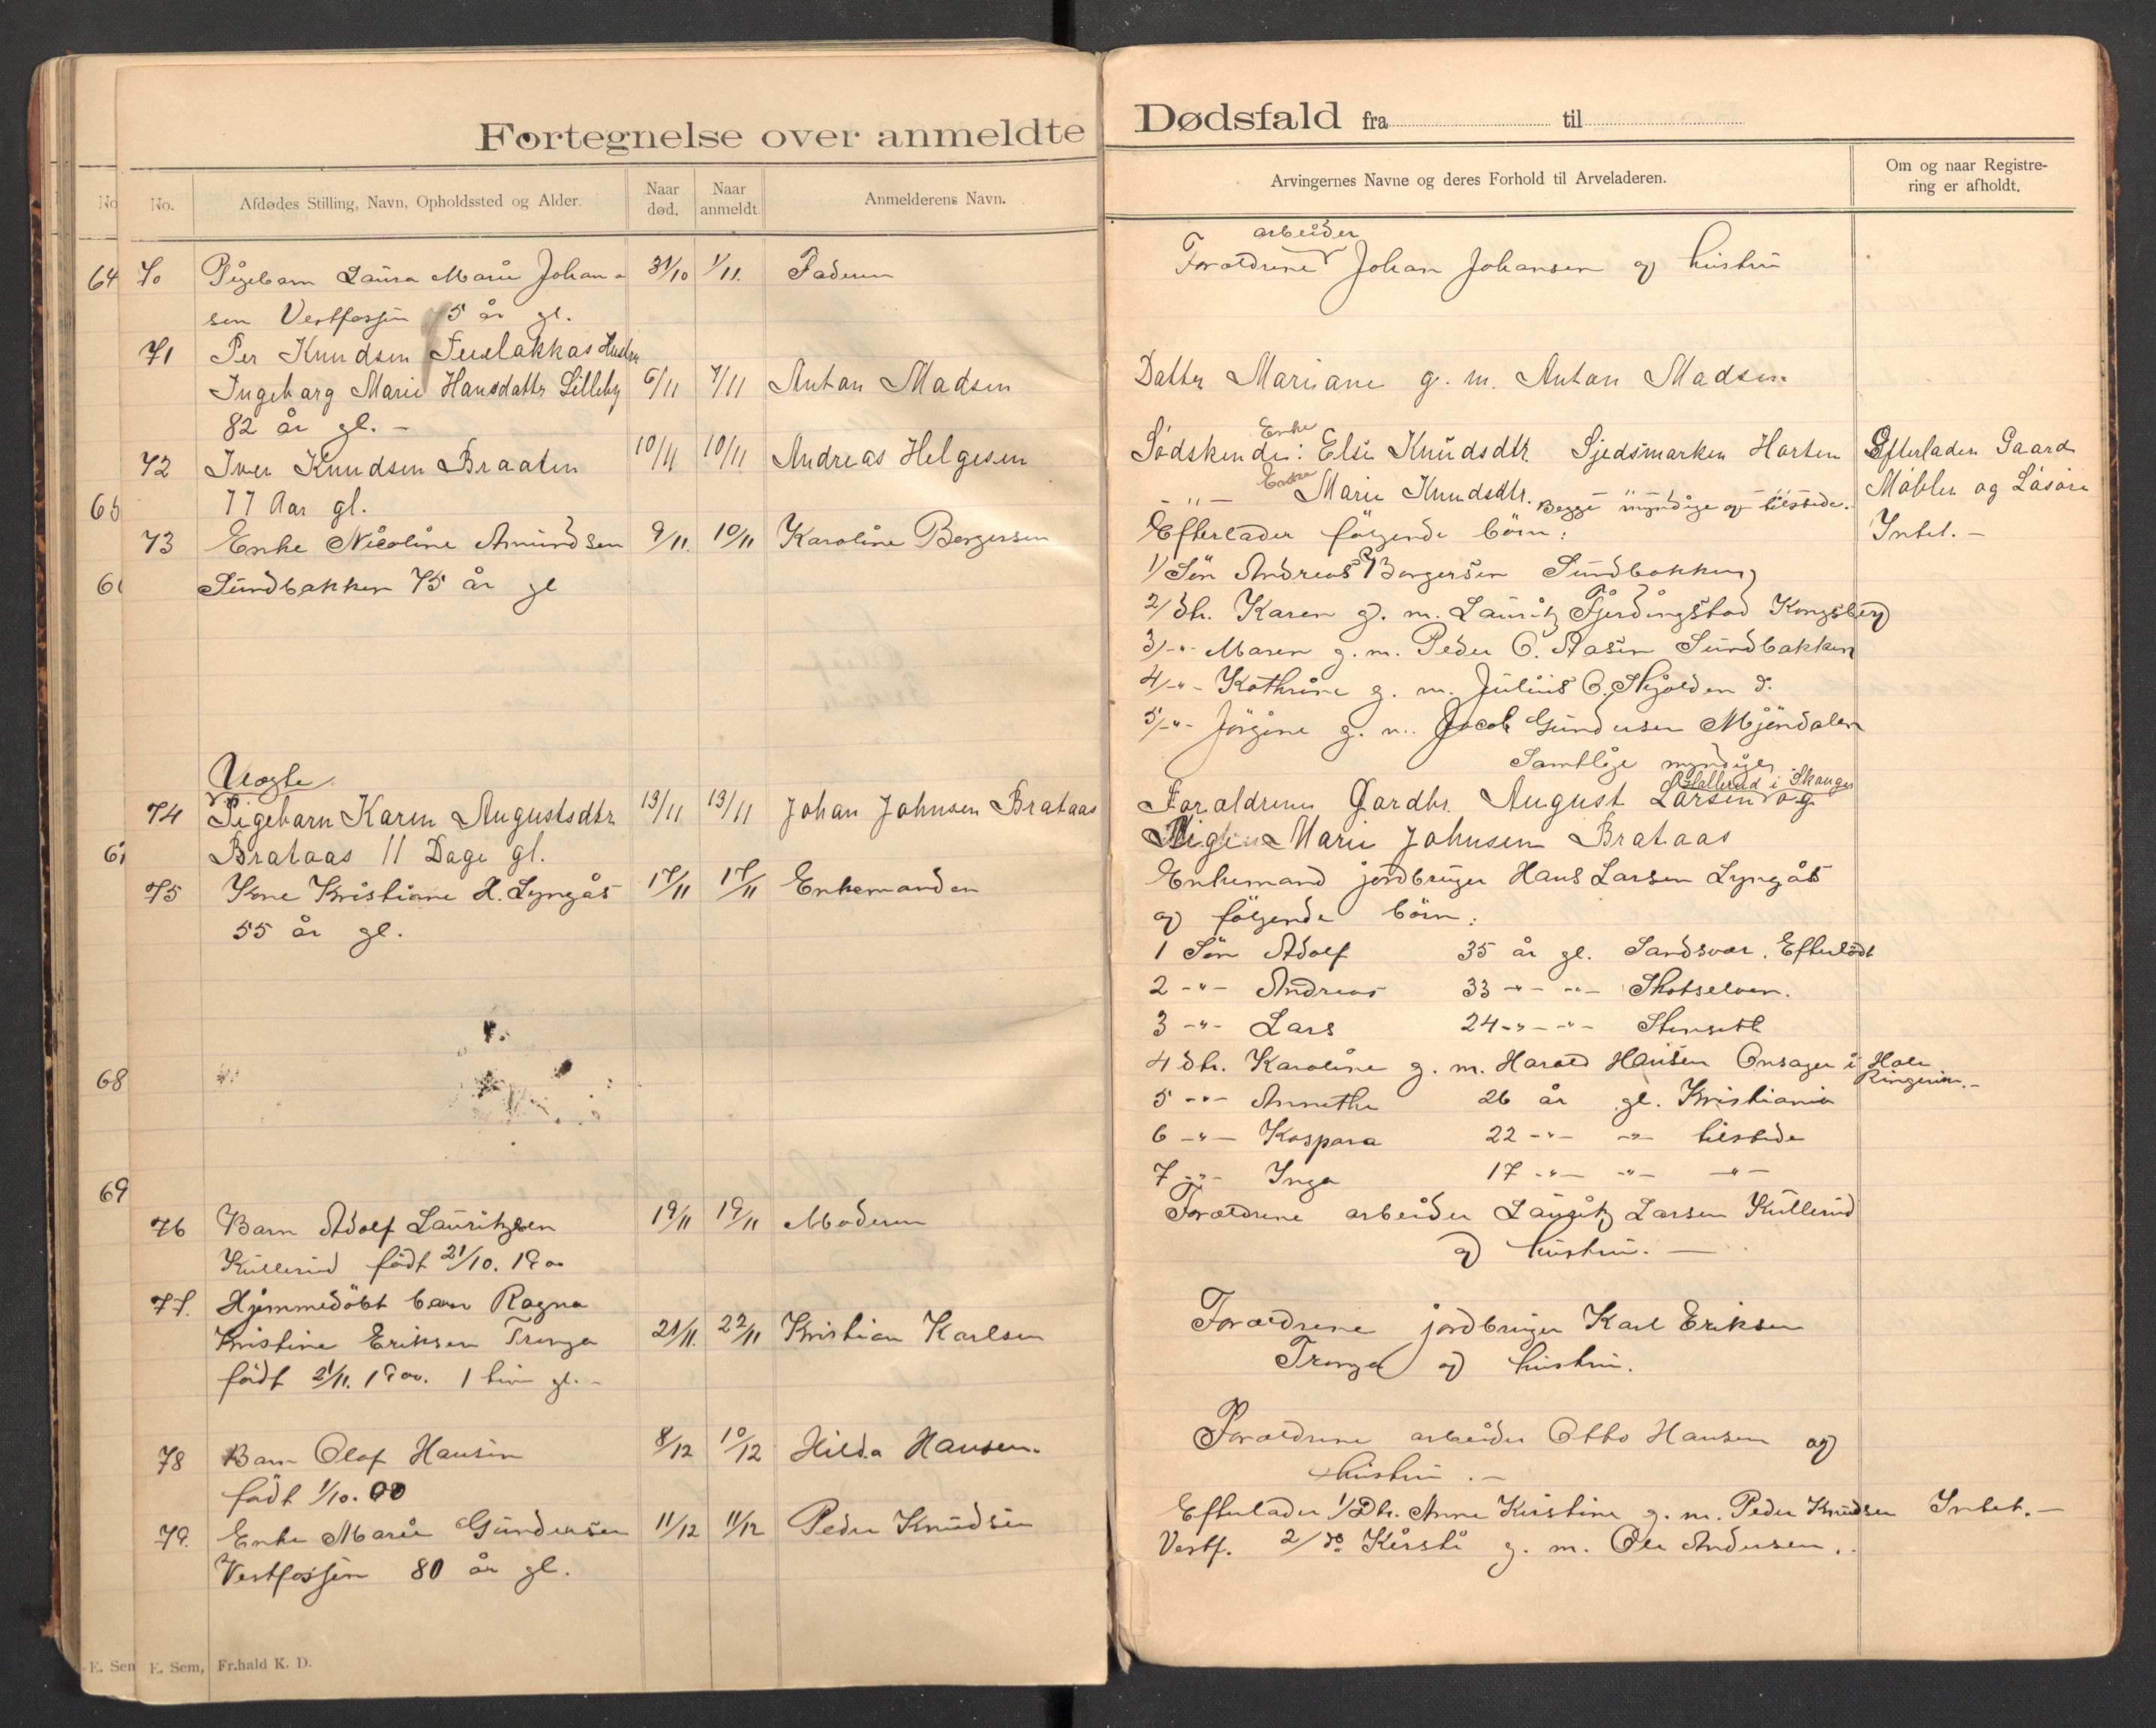 Fortegnelse over anmeldte Dødsfald fra til
No. Afdødes Stilling, Navn, Opholdssted og Alder. Naar død. Naar anmeldt. Anmelderens Navn.
Arvingernes Navne og deres Forhold til Arveladeren. Om og naar Registrering er afholdt.
64
65
68
69
70 Pigebarn Laura Marie Johan- 31/10 1/11. Faderen
sen Vestfossen 5 år gl.
71 Per Knudsen Hustru
Ingeborg Marie Hansdatter Lilleby 6/11 7/11 Anton Madsen
82 år gl. -
72 Iver Knudsen Braaten 10/11 10/11 Andreas Helgesen
77 Aar gl.
73 Enke Nicoline Amundsen 9/11. 10/11 Karoline Borgersen
Sundbakken 75 år gl
Uægte
74 Pigebarn Karen Augustsdtr 13/11 13/11 Johan Johnsen Brataas
Brataas 11 Dage gl.
75 Kone Kristiane H. Lyngås 17/11 17/11 Enkemanden
55 år gl.
76 Barn Adolf Lauritzsen 19/11 19/11 Moderen
Kullerud födt 21/10. 1900
77. Hjemmedöbt barn Ragna
Kristine Eriksen Tronga 21/11. 22/11 Kristian Karlsen
födt 21/11. 1900. 1 time gl. -
78 Barn Olaf Hansen 8/12 10/12 Hilda Hansen.
födt 1/10. 00
79. Enke Marie Gundersen 11/12 11/12 Peder Knudsen
Vestfossen 80 år gl.
E. Sem, Fr.hald K. D.
arbeider
Forældrene Johan Johansen og hustru
Datter Mariane g. m. Anton Madsen
Enke
Södskende: Else Knudsdtr. Horten Efterlader Gaard
Enke
- " - Marie Knudsdtr. Begge myndige og tilstede. Möbler og Lösöre
Efterlader fölgende börn: Intet. -
1/ Sön Andreas Borgersen Sundbakken
2/ dtr. Karen g. m. Lauritz Fjerdingstad Kongsberg
3/ -"- Maren g. m. Peder O. Aasen Sundbakken
4/ -"- Kathrine g. m. Julius O. Skjolden d.
5/ -"- Jörgine g. m. Jacob Gundersen Mjöndalen
Samtlige myndige
Hallerud i Skauger
Foraldrene Gardbr. August Larsen og
Pigen Marie Johnsen Brataas
Enkemand jordbruger Hans Larsen Lyngås
og fölgende börn:
1 Sön Adolf 35 år gl. Sandsvær. Efterlödt
2 -"- Andreas 33 -"- -"- Skotselven.
3 -"- Lars 24 -"- -"- Stenseth
4 dtr. Karoline g. m. Harald Hansen Onsager i Hole
Ringerike. -
5 -"- Annethe 26 år gl. Kristiania
6 -"- Kaspara 22 -"- -"- tilstede
7 -"- Inga 17 -"- -"- -"-
Forældrene arbeider Lauritz Larsen Kullerud
og hustru. -
Forældrene jordbruger Karl Eriksen
Tronga og hustru.
Forældrene arbeider Otto Hansen og
hustru. -
Efterlader 1/ Dtr. Anne Kirstine g. m. Peder Knudsen Intet. -
Vestf. 2/ do Kirsti g. m. Ole Andersen.